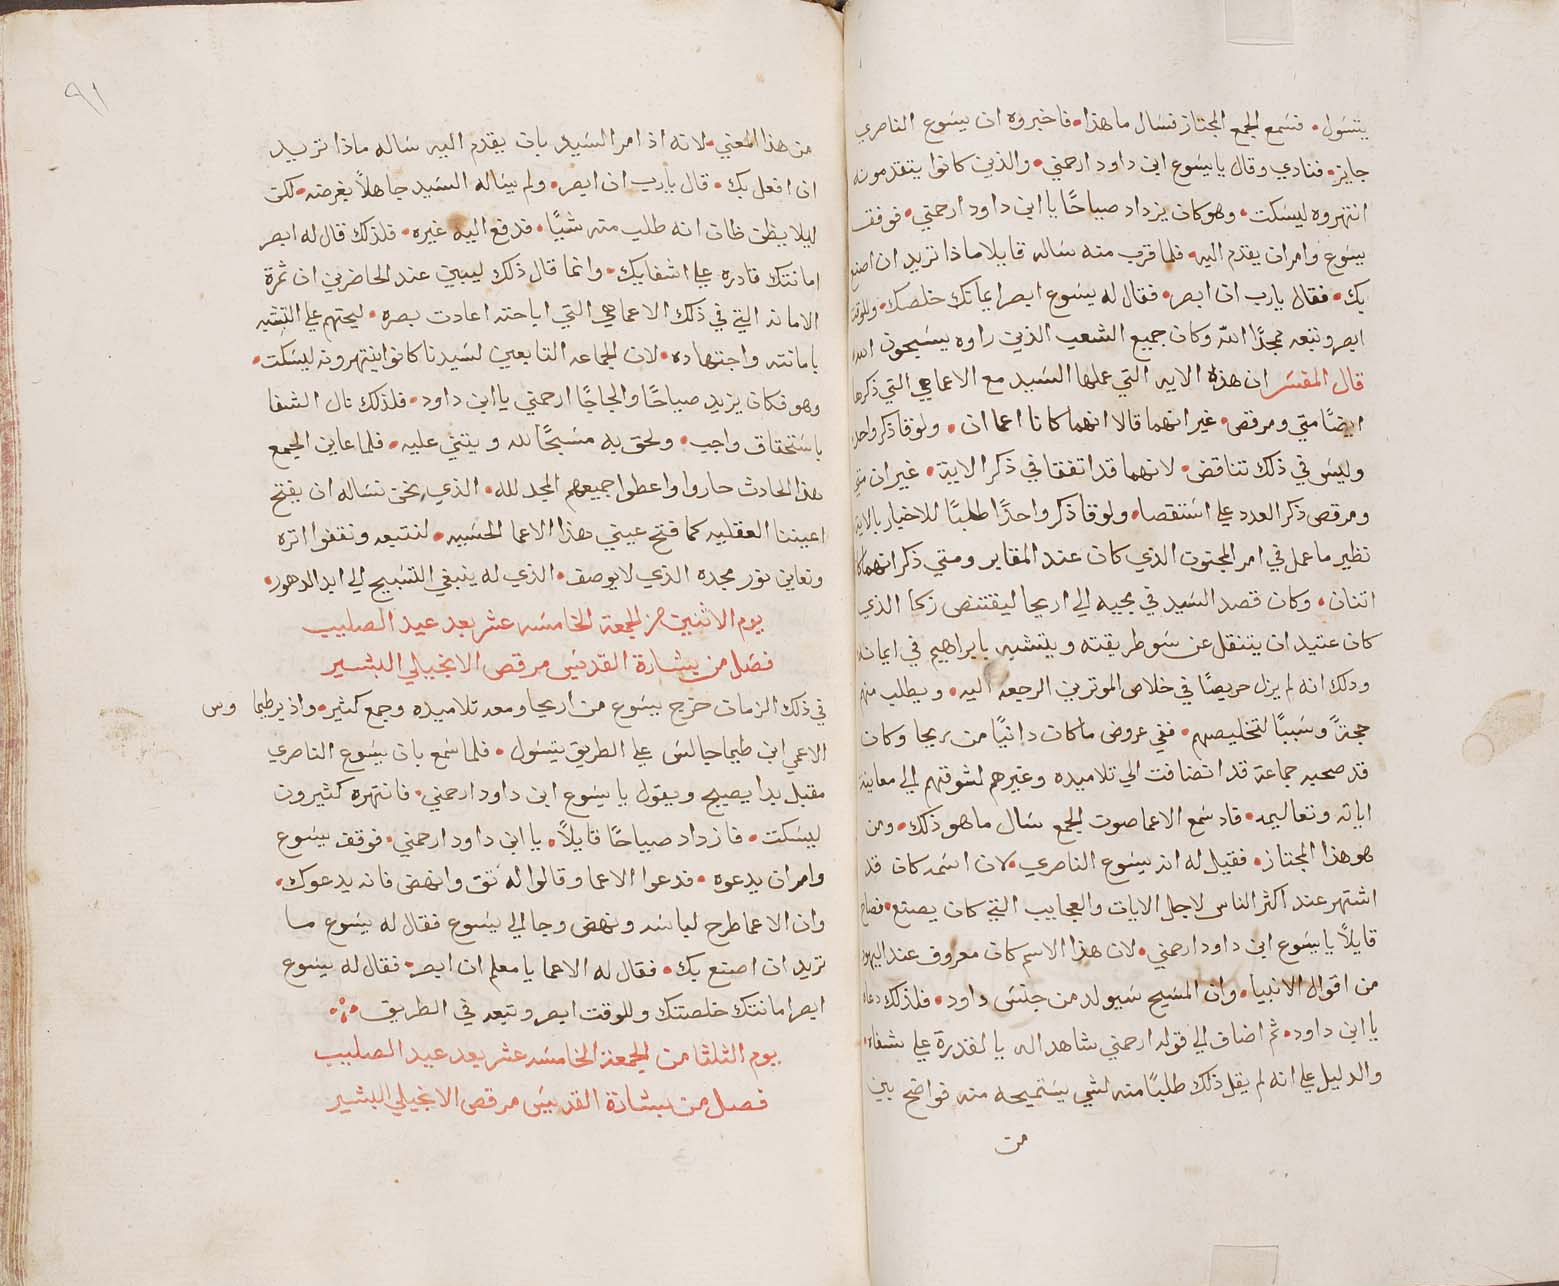 يتسول • فسمع الجمع المجتاز فسال ما هذا • فاخبروه ان يسوع الناصري
جايز • فنادي وقال يا يسوع ابن داود ارحمني • والذين كانوا يتقدمونه
انتهروه ليسكت • وهو كان يزداد صياحًا يا ابن داود ارحمني • فوقف
يسوع وامر ان يقدم اليه • فلما قرب منه ساله قايلا ماذا تريد ان اصنع
بك • فقال يارب ان ابصر • فقال له يسوع ابصر ايمانك خلصك • وللوقت
ابصر وتبعه ممجدًا الله وكان جميع الشعب الذين راوه يسبحون الله
قال المفسر ان هذه الايه التي عملها السيد مع الاعما هي التي ذكرها
ايضًا متي ومرقص • غير انهما قالا انهما كانا اعما ان • ولوقا ذكر واحد
وليس في ذلك تناقض • لانهما قد اتفقا في ذكر الاية • غير ان متي
ومرقص ذكر العدد علي استنقصا • ولوقا ذكر واحدًا طلبًا للاخبار بالايه
نظير ما عمل في امر المجنون الذي كان عند المقابر ومتي ذكر انهما كانا
اتنان • وكان قصد السيد في مجيه الي اريحا ليقتنص زكا الذي
كان عتيد ان يتنقل عن سو طريقته ويتشبه بابراهيم في ايمانه
وذلك انه لم يزل حريصًا في خلاص الموترين الرجعه اليه • ويطلب منهم
حجةً وسببًا لتخليصهم • ففي عروض ما كان دانيًا من ريحا وكان
قد صحبه جماعة قد انضافت الي تلاميده وغيرهم لشوقهم الي معاينة
اياته وتعاليمه • فاد سمع الاعما صوت الجمع سال ما هو ذلك • ومن
هو هذا المجتاز • فقيل له انه يسوع الناصري • لان اسمه كان قد
اشتهر عند اكثر الناس لاجل الايات والعجايب التي كان يصنع • فصاح
قايلاً يا يسوع ابن داود ارحمني • لان هذا الاسم كان معروف عند اليهود
من اقوال الانبيا • وان المسيح سيولد من جنس داود • فلذلك دعاه
يا ابن داود • ثم اضاف الي قوله ارحمني شاهد اله بالقدرة علي شفاه •
والدليل علي انه لم يقل ذلك طلبًا منه لشي يستميحه منه فواضح بين
من
٩١
من هذا المعني • لانه اذ امر السيد بان يقدم اليه ساله ماذا تريد
ان افعل بك • قال يارب ان ابصر • ولم يساله السيد جاهلاً بغرضه • لكن
ليلا يظن ظان انه طلب منه شيًا • فدفع اليه غيره • فلذلك قال له ابصر
امانتك قادره علي اشفايك • وانما قال ذلك ليبين عند الحاضرين ان ثمرة
الامانه التي في ذلك الاعما هي التي اباحته اعادت بصره • ليحتهم علي التشبه
بامانته واجتهاده • لان الجماعه التابعين لسيدنا كانوا ينتهرونه ليسكت •
وهو فكان يزيد صياحًا والجاجًا ارحمني يا ابن داود • فلذلك نال الشفا
باستحقاق واجب • ولحق به مسبحًا لله ويتني عليه • فلما عاين الجمع
هذا الحادث حاروا واعطوا جميعهم المجد لله • الذي نحن نساله ان يفتح
اعيننا العقليه كما فتح عيني هذا الاعما الحسيه • لنتبعه ونقفوا اتره
ونعاين نور مجده الذي لا يوصف • الذي له ينبغي التسبيح الي ابد الدهور •
يوم الاثنين من الجمعة الخامسه عشر بعد عيد الصليب
فصل من بشارة القديس مرقص الانجيلي البشير
في ذلك الزمان خرج يسوع من اريحا ومعه تلاميده وجمع كثير • واذ برطيما وس
الاعمي ابن طيما جالس علي الطريق يتسول • فلما سمع بان يسوع الناصري
مقبل بدا يصيح ويقول يا يسوع ابن داود ارحمني • فانتهره كثيرون
ليسكت • فازداد صياحًا قايلاً • يا ابن داود ارحمني • فوقف يسوع
وامر ان يدعوه • فدعوا الاعما وقالوا له ثق وانهض فانه يدعوك •
وان الاعما طرح لباسه ونهض وجا الي يسوع فقال له يسوع ما
تريد ان اصنع بك • فقال له الاعما يا معلم ان ابصر • فقال له يسوع
ابصر امانتك خلصتك وللوقت ابصر وتبعه في الطريق •
يوم الثلثا من الجمعة الخامسه عشر بعد عيد الصليب
فصل من بشارة القديس مرقص الانجيلي البشير